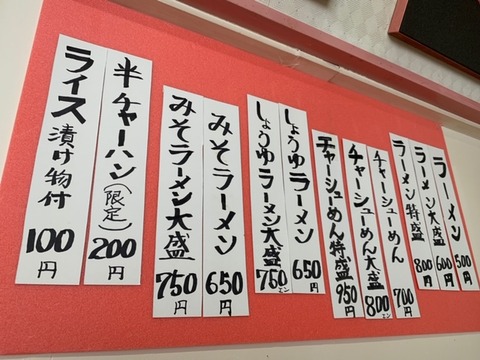 ラーメン 500円
ラーメン大盛 600円
ラーメン特盛 800円
チャーシューめん 700円
チャーシューめん大盛 800円
チャーシューめん特盛 950円
しょうゆラーメン 650円
しょうゆラーメン大盛 750エン
みそラーメン 650円
みそラーメン大盛 750円
半チャーハン(限定) 200円
ライス漬け物付 100円